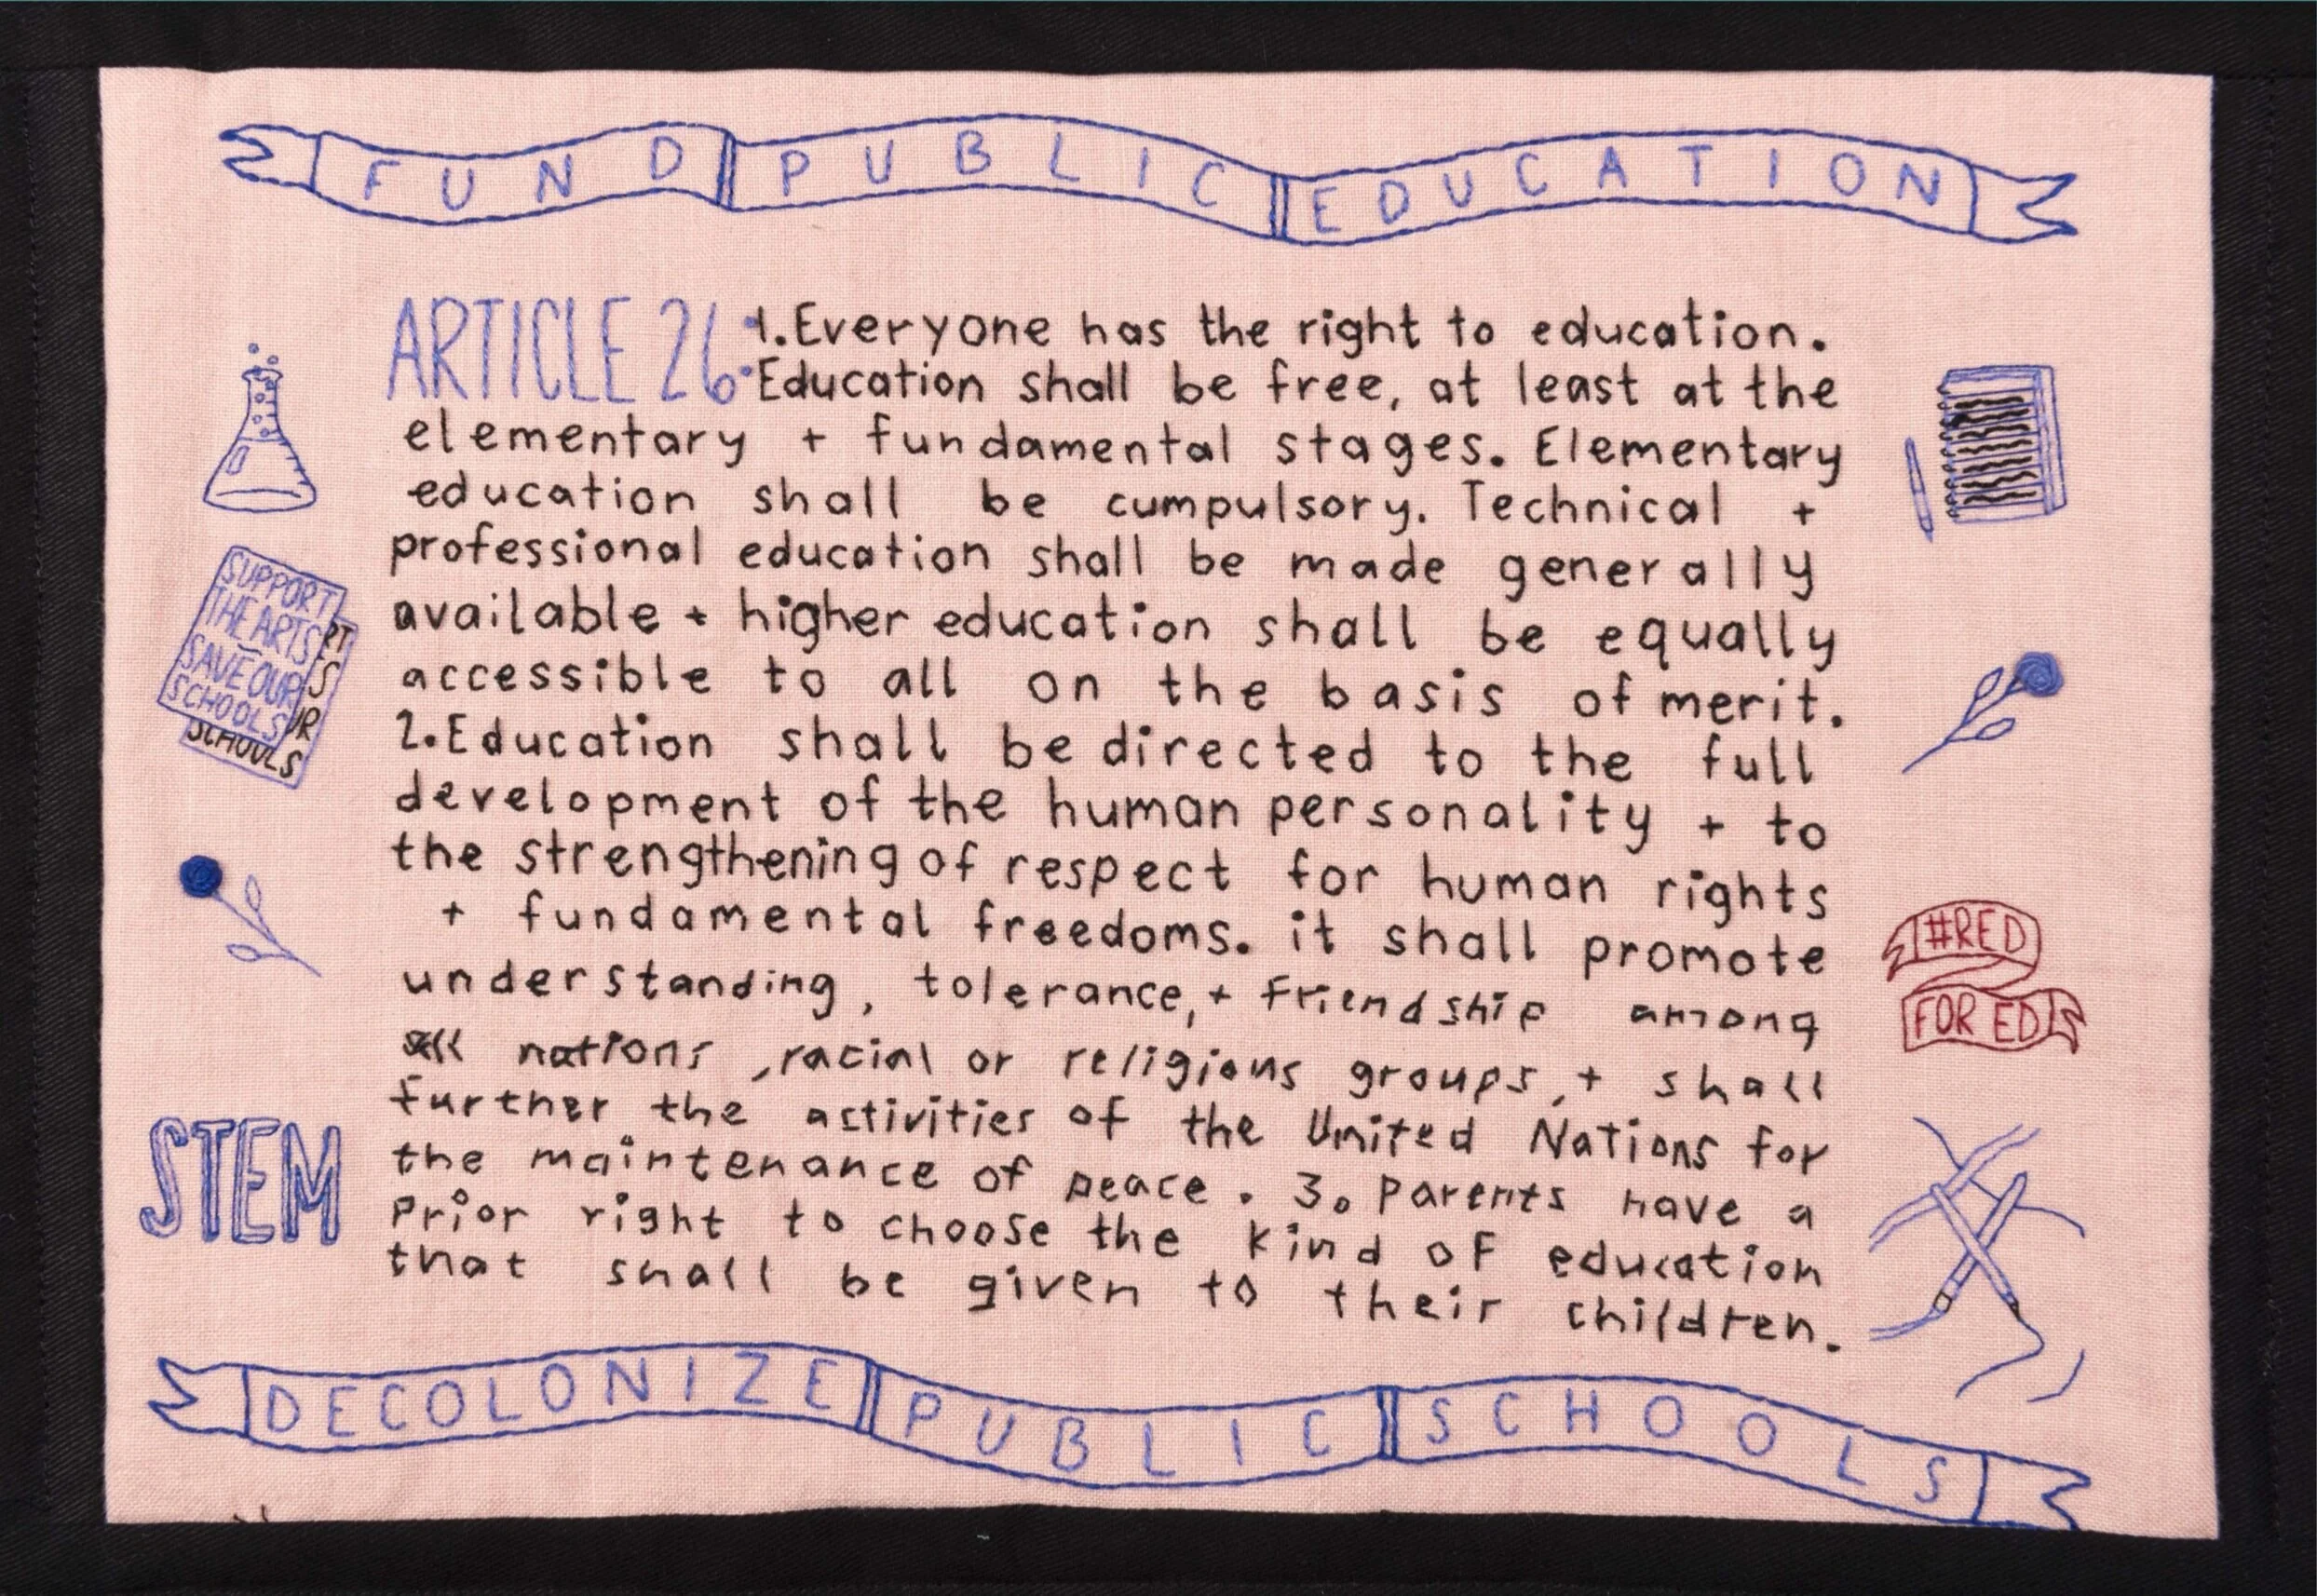 FUND PUBLIC EDUCATION
ARTICLE 26:
1.Everyone has the right to education.
Education shall be free, at least at the
elementary + fundamental stages. Elementary
education shall be cumpulsory. Technical +
professional education shall be made generally
available + higher education shall be equally
accessible to all on the basis of merit.
2.Education shall be directed to the full
development of the human personality + to
the strengthening of respect for human rights
+ fundamental freedoms. it shall promote
understanding, tolerance, + friendship among
all nations, racial or religious groups, + shall
further the activities of the United Nations for
the maintenance of peace. 3. Parents have a
prior right to choose the kind of education
that shall be given to their children.
SUPPORT
THE ARTS
SAVE OUR
SCHOOLS
RT
S
UR
SCHOOLS
STEM
#RED
FOR ED
DECOLONIZE PUBLIC SCHOOLS